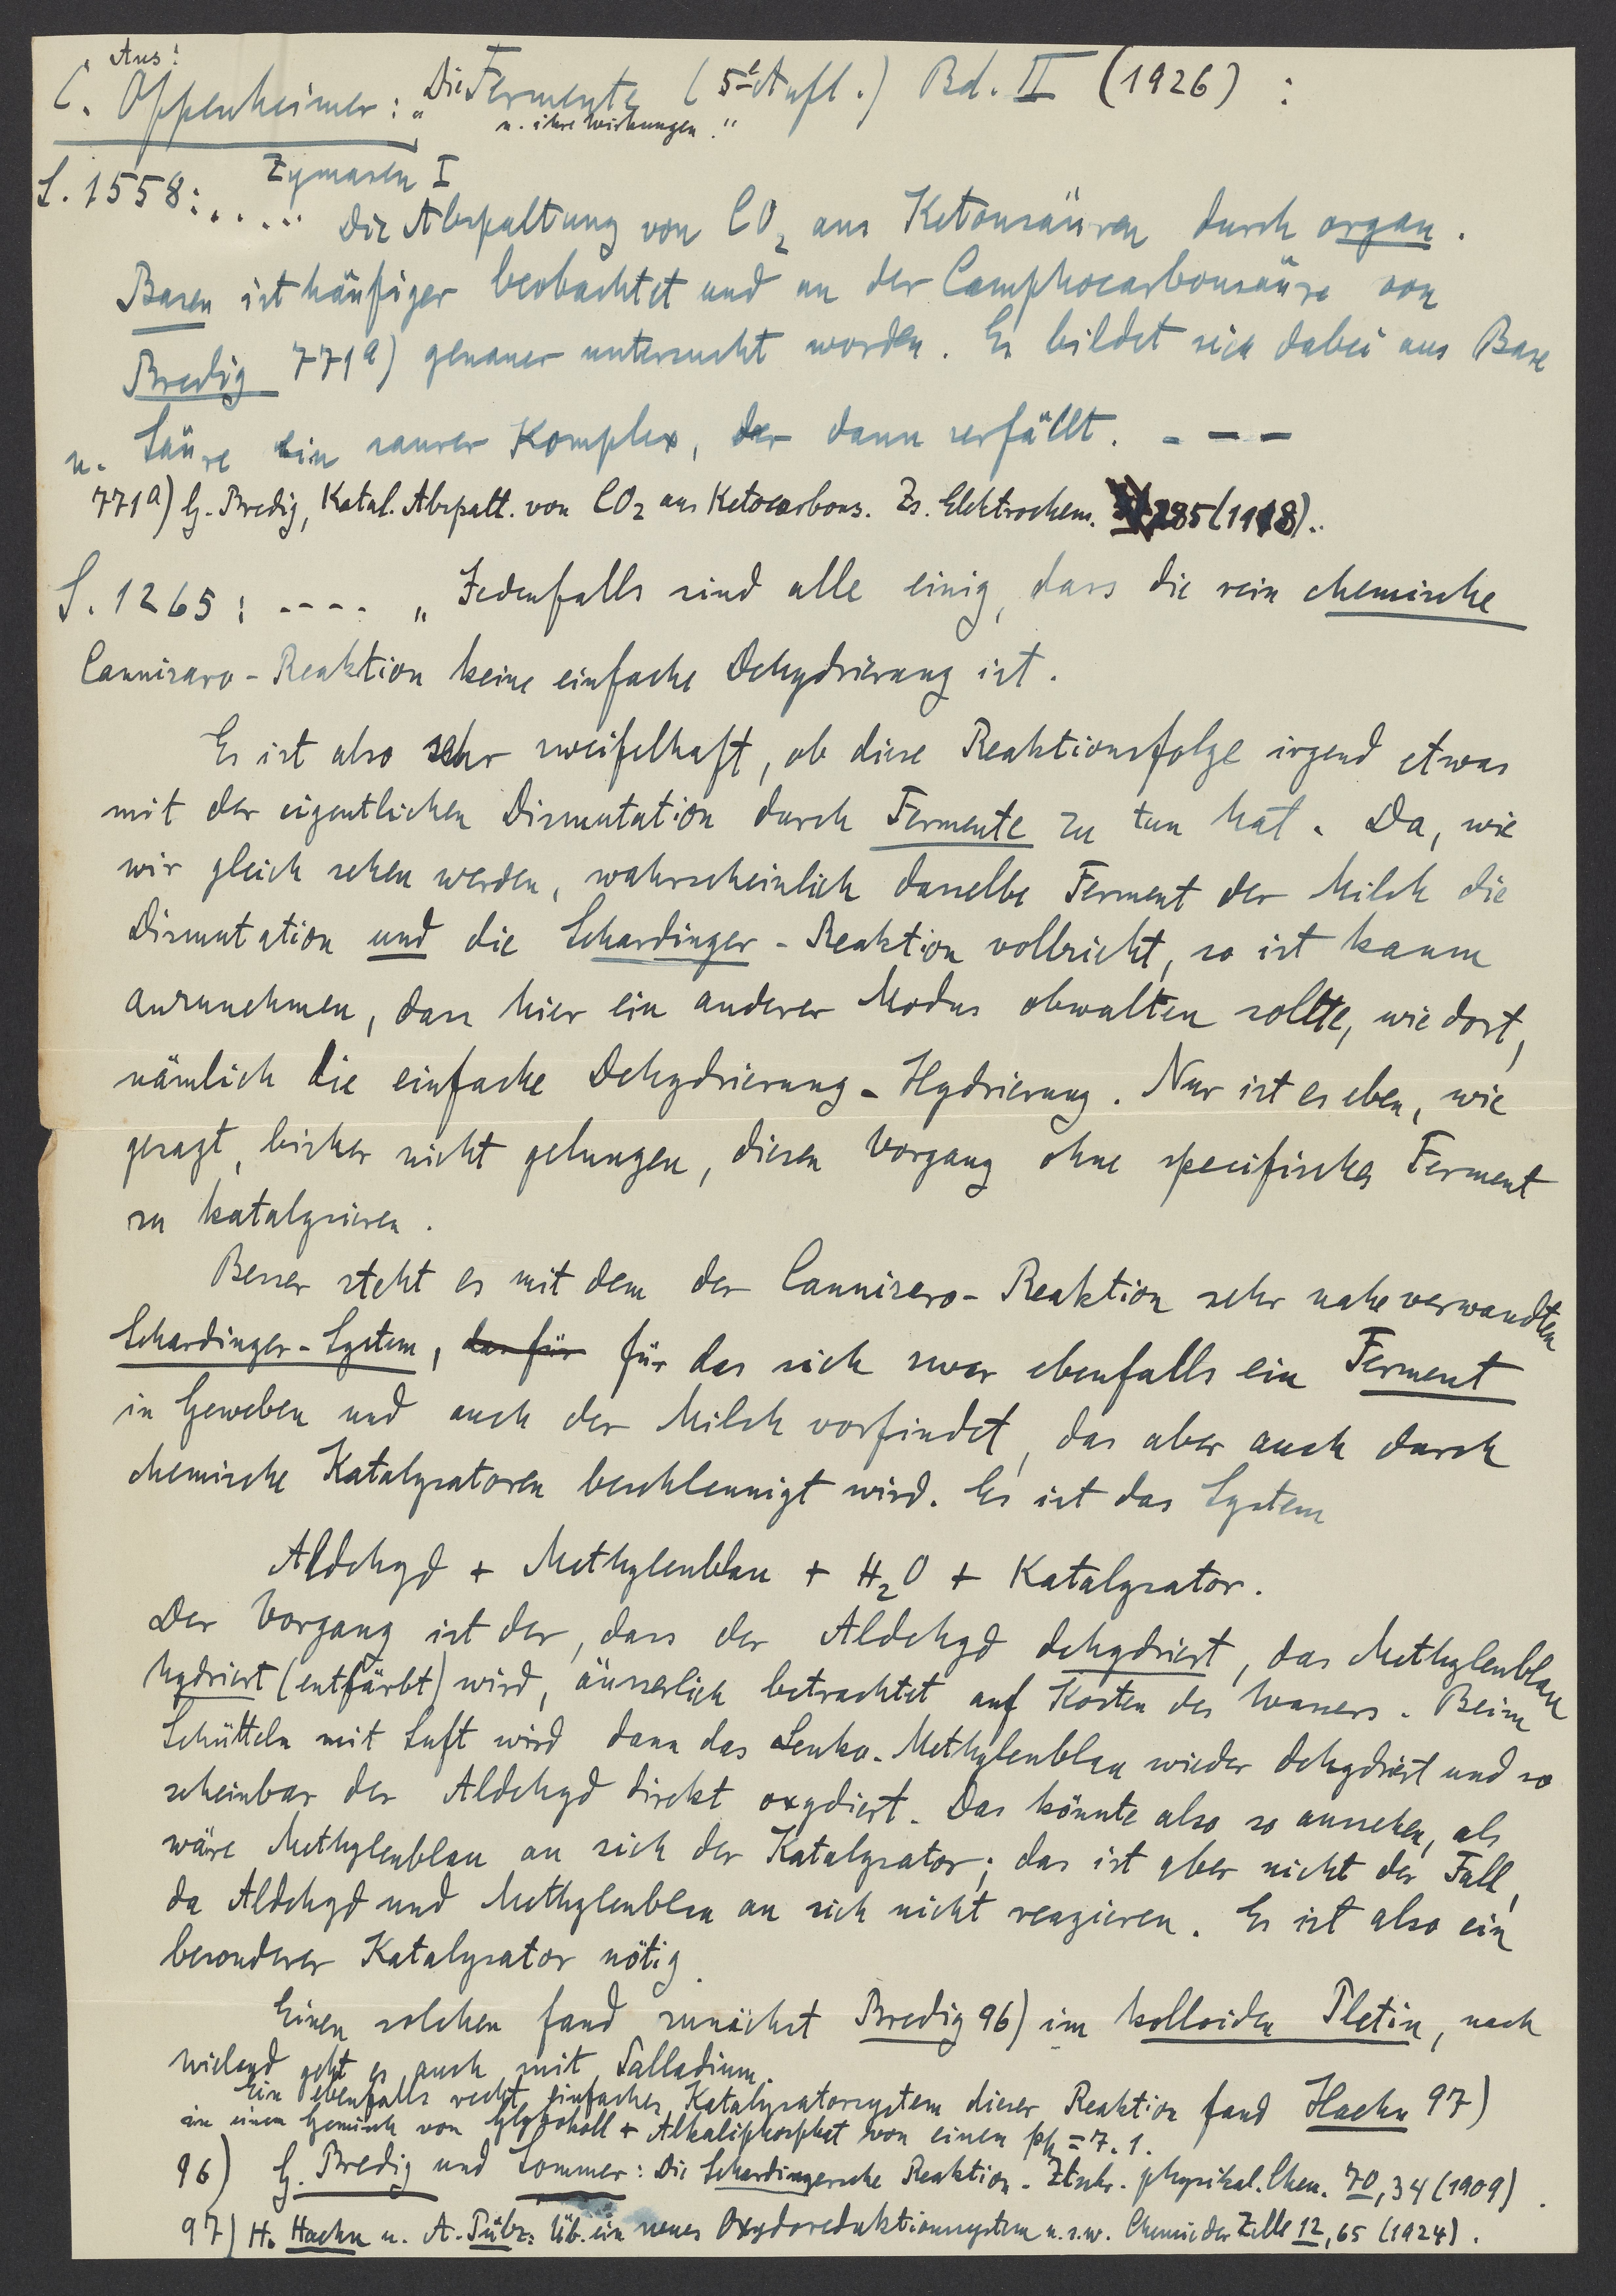 Aus:
C. Oppenheimer: „Die Fermente (5te Aufl.) Bd. II (1926) :
u. ihre Wirkungen."
Zymasen I
S. 1558: ..... Die Abspaltung von CO2 aus Ketonsäuren durch organ.
Basen ist häufiger beobachtet und an der Camphocarbonsäure von
Bredig 771a) genauer untersucht worden. Es bildet sich dabei aus Base
u. Säure ein saurer Komplex, der dann zerfällt. - - - -
771a) G. Bredig, Katal. Abspalt. von CO2 aus Ketocarbons. Zs. Elektrochem. 285 (1918)..
S. 1265: ---- „Jedenfalls sind alle einig, dass die rein chemische
Cannizaro-Reaktion keine einfache Dehydrierung ist.
Es ist also sehr zweifelhaft, ob diese Reaktionsfolge irgend etwas
mit der eigentlichen Dismutation durch Fermente zu tun hat. Da, wie
wir gleich sehen werden, wahrscheinlich dasselbe Ferment der Milch die
Dismutation und die Schardinger-Reaktion vollzieht, so ist kaum
anzunehmen, dass hier ein anderer Modus obwalten sollte, wie dort,
nämlich die einfache Dehydrierung-Hydrierung. Nur ist es eben, wie
gesagt, bisher nicht gelungen, diesen Vorgang ohne specifisches Ferment
zu katalysieren.
Besser steht es mit dem der Cannizero-Reaktion sehr nahe verwandten
Schardinger-System, das für für das sich zwar ebenfalls ein Ferment
in Geweben und auch der Milch vorfindet, das aber auch durch
chemische Katalysatoren beschleunigt wird. Es ist das System
Aldehyd + Methylenblau + H2O + Katalysator.
Der Vorgang ist der, dass der Aldehyd dehydriert, das Methylenblau
hydriert (entfärbt) wird, äusserlich betrachtet auf Kosten des Wassers. Beim
Schütteln mit Luft wird dann das Leuko-Methylenblau wieder dehydriert und so
scheinbar der Aldehyd direkt oxydiert. Das könnte also so aussehen, als
wäre Methylenblau an sich der Katalysator; das ist aber nicht der Fall,
da Aldehyd und Methylenblau an sich nicht reagieren. Es ist also ein
besonderer Katalysator nötig.
Einen solchen fand zunächst Bredig 96) im kolloiden Platin, nach
Wieland geht es auch mit Palladium.
Ein ebenfalls recht einfaches Katalysatorsystem dieser Reaktion fand Haehn 97)
in einem Gemisch von Glykokoll + Alkaliphosphat von einem ph = 7.1.
96) G. Bredig und Sommer: Die Schardingersche Reaktion. Ztschr. physikal. Chem. 70, 34 (1909).
97) H. Haehn u. A. Pülz: Üb. ein neues Oxydoreduktionssystem u.s.w. Chemie der Zelle 12, 65 (1924).